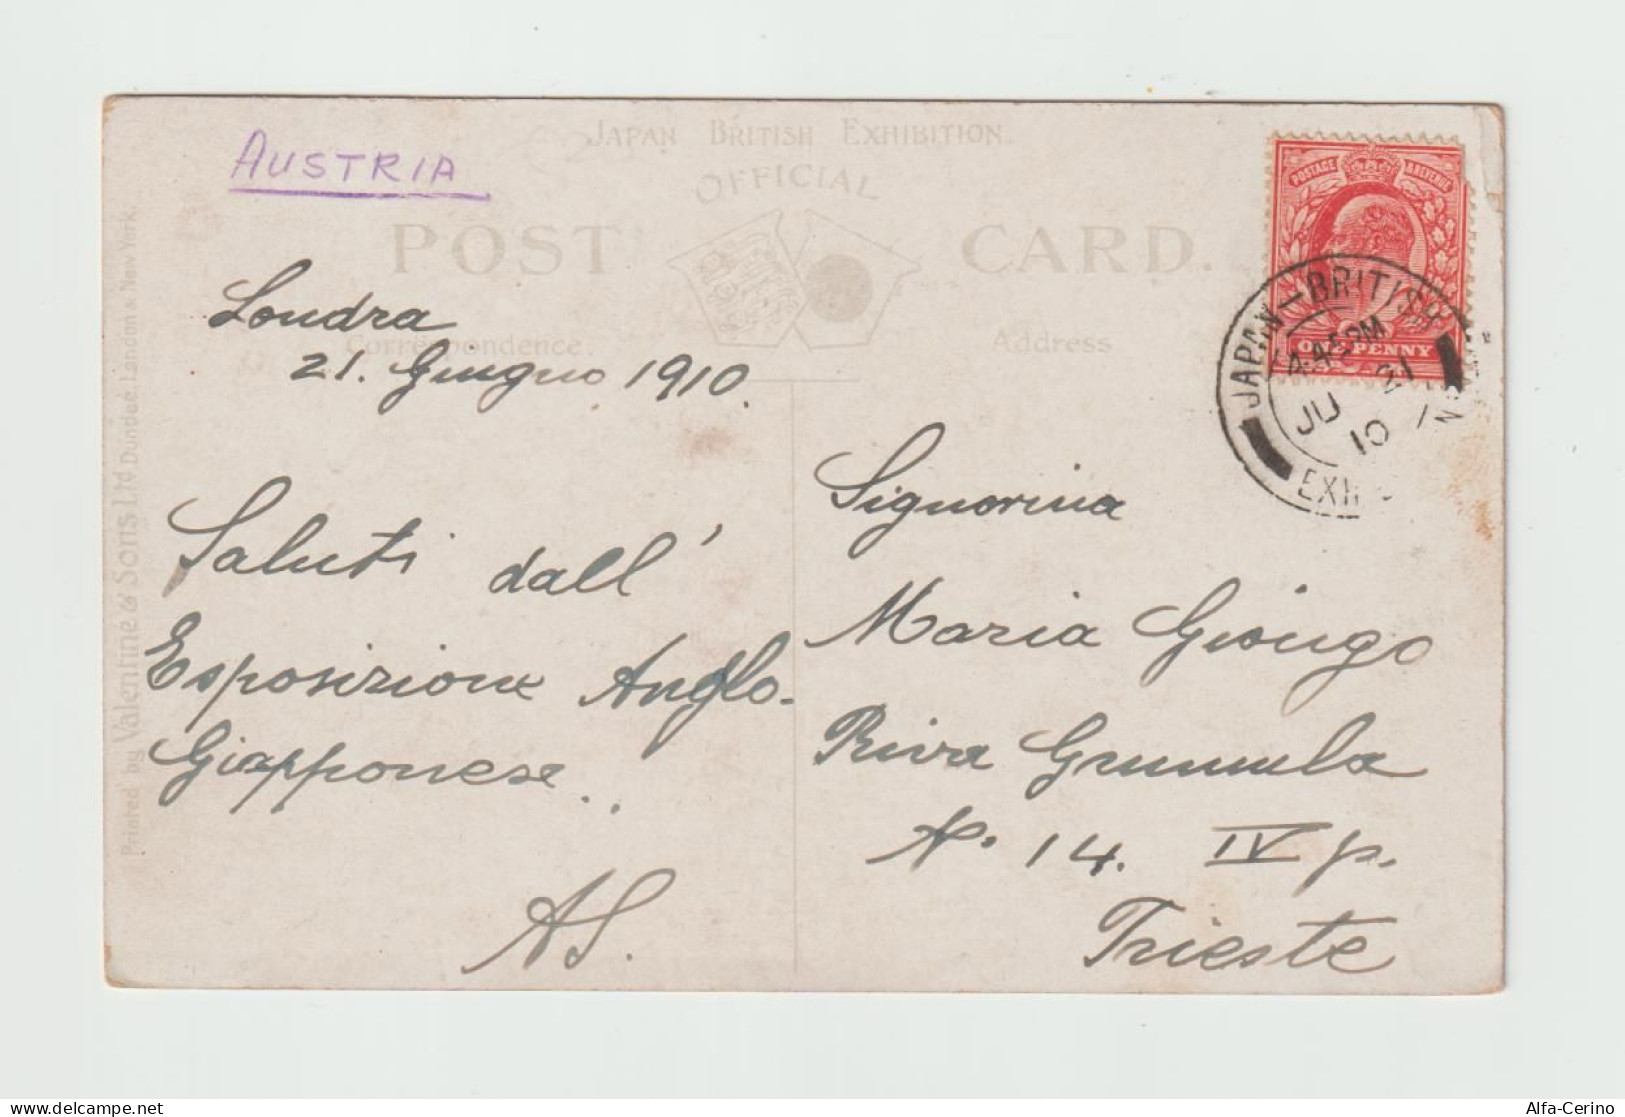 AUSTRIA
JAPAN BRITISH EXHIBITION.
OFFICIAL
POST CARD.
Correspondence.
Address
Londra
21. Giugno 1910.
Saluti dall'
Esposizione Anglo-
Giapponese..
AS.
Signorina
Maria Giongo
Riva Grumula
N. 14. IV p.
Trieste
POSTAGE REVENUE
ONE PENNY
JAPAN-BRITISH
4.45PM
JU 21
10
Printed by Valentine & Sons Ltd Dundee, London & New York.
Alfa-Cerino
delcampe.net